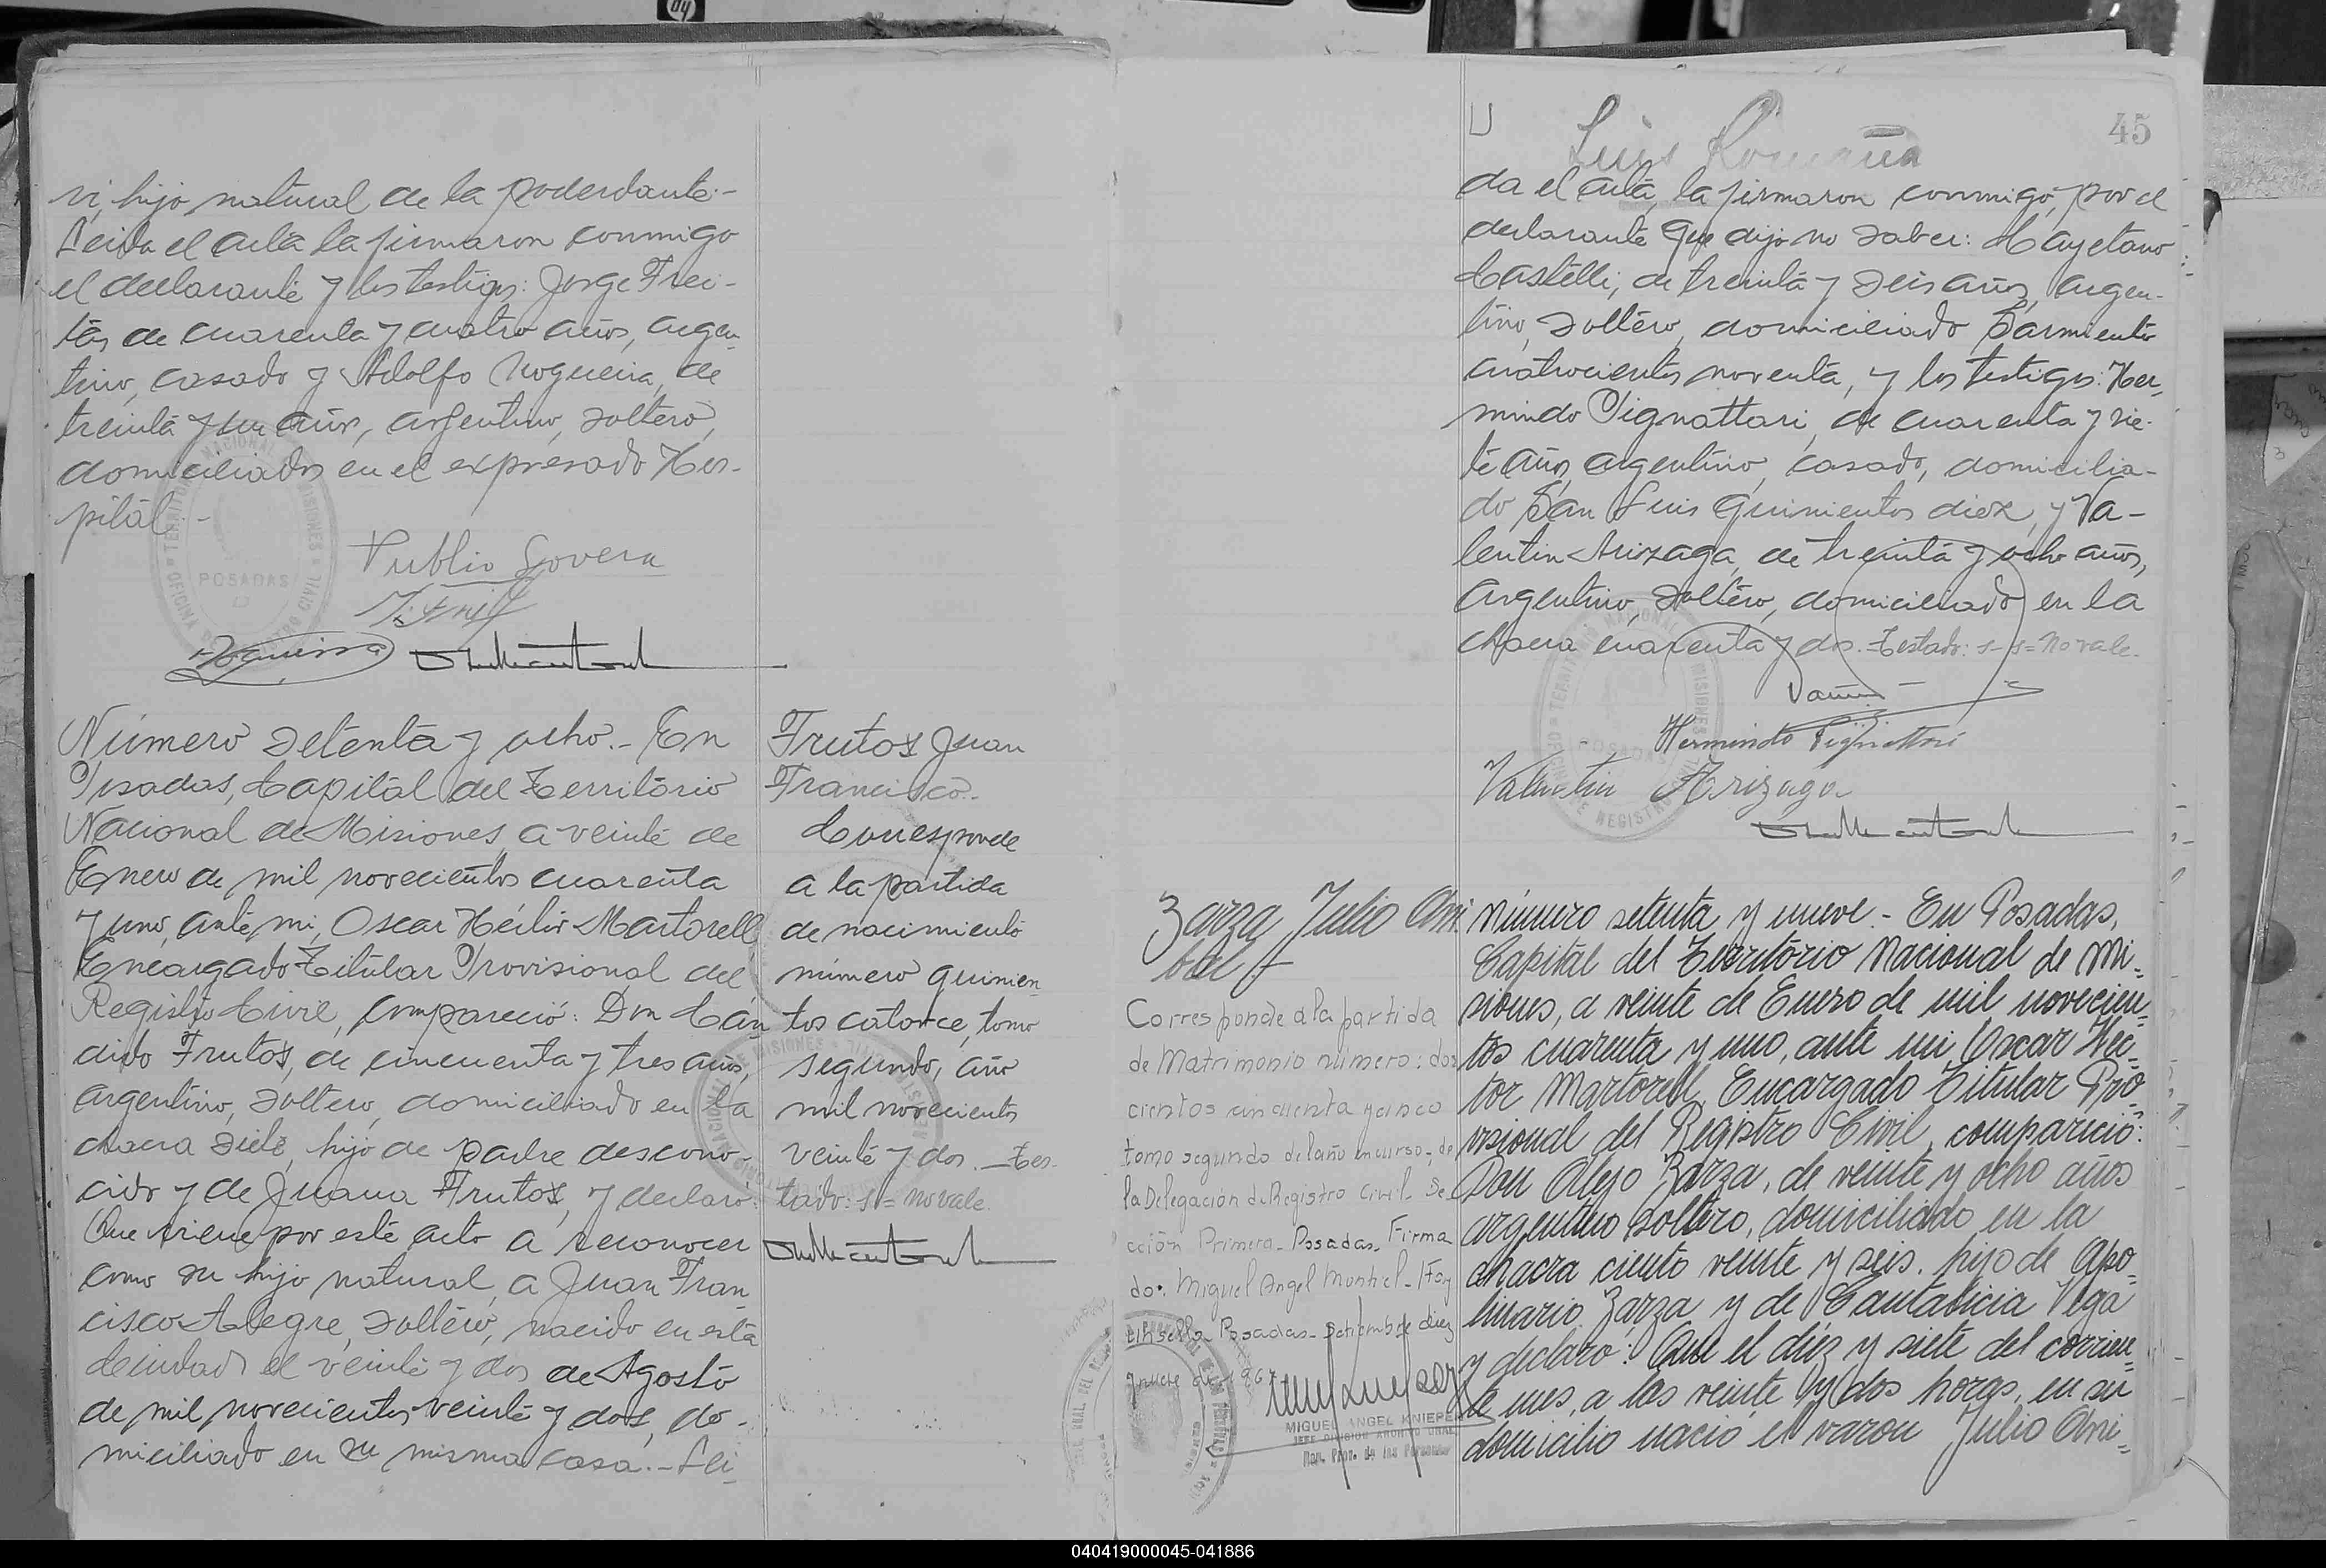 vi, hijo natural de la poderdante.-
Leida el acta la firmaron conmigo
el declarante y los testigos: Jorge Frei-
tas de cuarenta y cuatro años, argen-
tino, casado y Adolfo Nogueira, de
treinta y un años, argentino, soltero,
domiciliados en el expresado Hos-
pital.-
POSADAS
Publio Lovera
Número setenta y ocho.- En
Posadas, Capital del Territorio
Nacional de Misiones, a veinte de
Enero de mil novecientos cuarenta
y uno, ante mi, Oscar Héctor Martorell
Encargado Titular Provisional del
Registro Civil, compareció: Don Cán
dido Frutos, de cincuenta y tres años,
argentino, soltero, domiciliado en la
chacra siete, hijo de padre descono-
cido y de Juana Frutos, y declaró:
Que viene por este acto a reconocer
como su hijo natural, a Juan Fran
cisco Alegre, soltero, nacido en esta
Ciudad el veinte y dos de Agosto
de mil novecientos veinte y dos, do-
miciliado en su misma casa.- Lei-
Frutos Juan
Francisco.-
Corresponde
a la partida
de nacimiento
número quinien
tos catorce, tomo
segundo, año
mil novecientos
veinte y dos.- Tes-
tado: s = no vale.
45
Luis Romaña
da el acta, la firmaron conmigo, por el
declarante que dijo no saber: Cayetano
Castelli, de treinta y seis años, argen-
tino, soltero, domiciliado Sarmiento
cuatrocientos noventa, y los testigos: Her-
mindo Pignattari, de cuarenta y sie-
te años, argentino, casado, domicilia-
do San Luis quinientos diez, y Va-
lentin Arizaga, de treinta y ocho años,
argentino, soltero, domiciliado en la
chacra cuarenta y dos. Testado: s-s= No vale.
Hermindo Pignattari
Valentin Arizaga
Zarza Julio Ani
bal.-
Corresponde a la partida
de Matrimonio número: dos
cientos cincuenta y cinco
tomo segundo del año en curso, de
la Delegación de Registro Civil. Se
cción Primera. Posadas. Firma
do: Miguel Angel Montiel. Hay
un sello. Posadas. Setiembre diez
MIGUEL ANGEL KNIEPER
JEFE DIVISION ARCHIVO GRAL.
Número setenta y nueve.- En Posadas,
Capital del Territorio Nacional de Mi-
siones, a veinte de Enero de mil novecien-
tos cuarenta y uno, ante mi, Oscar Hec-
tor Martorell, Encargado Titular Pro-
visional del Registro Civil, compareció:
Don Alejo Zarza, de veinte y ocho años
argentino soltero, domiciliado en la
chacra ciento veinte y seis. hijo de Apo-
linario Zarza y de Cantalicia Vega
y declaró: Que el diez y siete del corrien-
te mes, a las veinte y dos horas, en su
domicilio nació el varon Julio Ani-
040419000045-041886